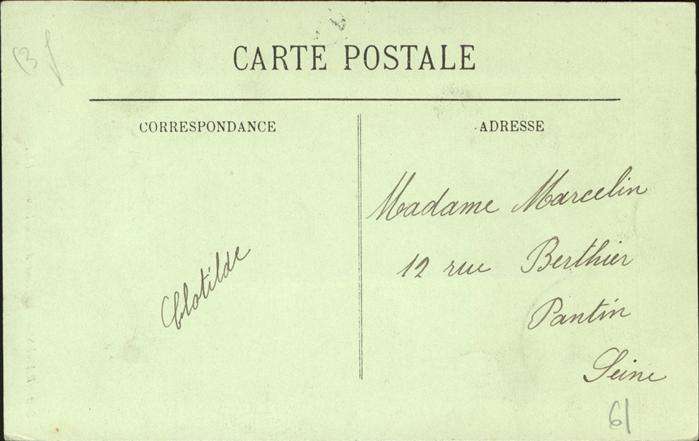 CARTE POSTALE
CORRESPONDANCE
Clotilde
ADRESSE
Madame Marcelin
12 rue Berthier
Pantin
Seine
61